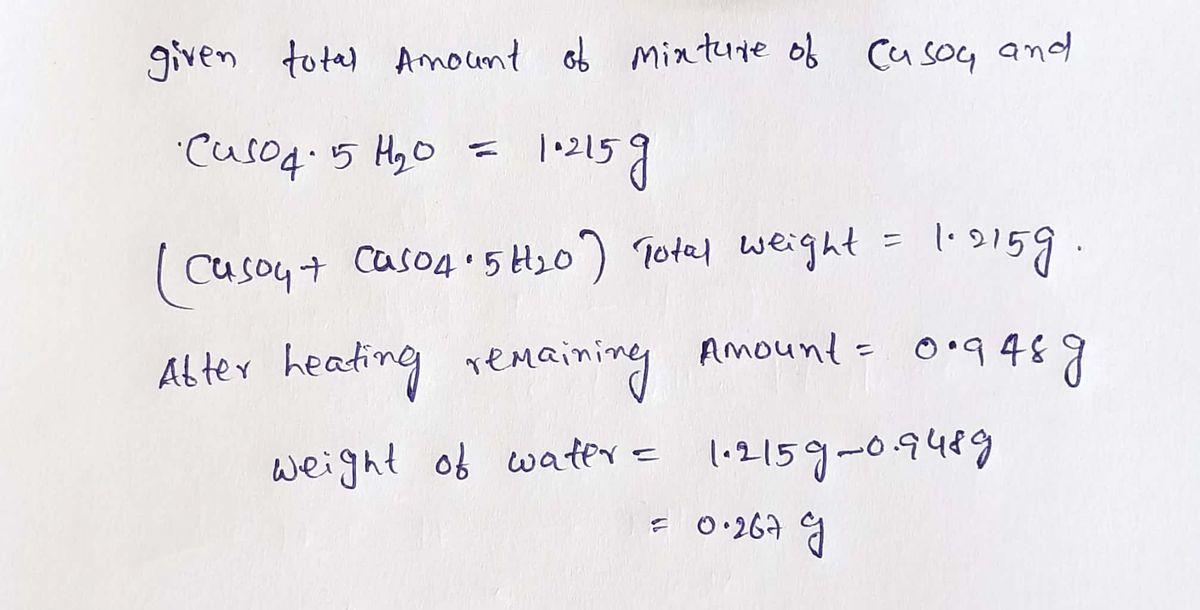 given total Amount of Mixture of CuSO4 and
CuSO4·5 H2O = 1·215g
(CuSO4 + CuSO4·5H2O) Total weight = 1·215g.
After heating remaining Amount = 0·948 g
weight of water = 1·215g-0.948g
= 0·267 g